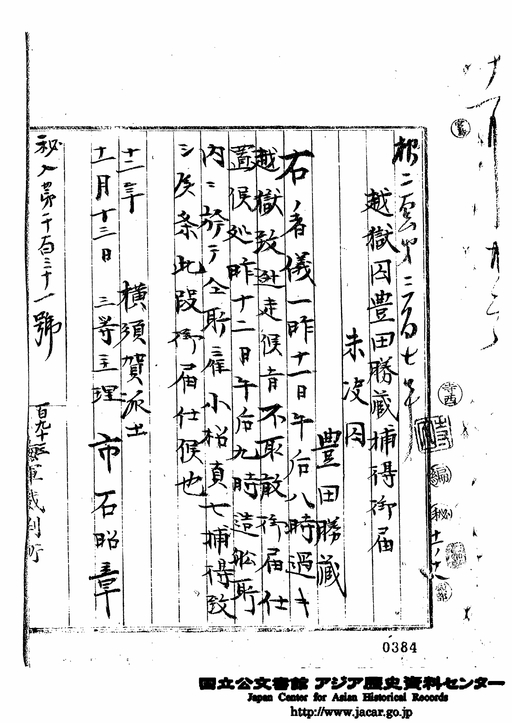 越獄囚豊田勝蔵捕得御届
未決囚
豊田勝蔵
右ノ者儀一昨十一日午后八時過キ
越獄致逃走候旨不取敢御届仕
置候処昨十二日午后九時造船所
内ニ於テ仝所雇小松貞七捕得致
シ候条此段御届仕候也
横須賀派出
十一月十三日 三等主理 市石昭章
海軍裁判所
秘入第千百三十一號
編
秘
0384
国立公文書館 アジア歴史資料センター
Japan Center for Asian Historical Records
http://www.jacar.go.jp